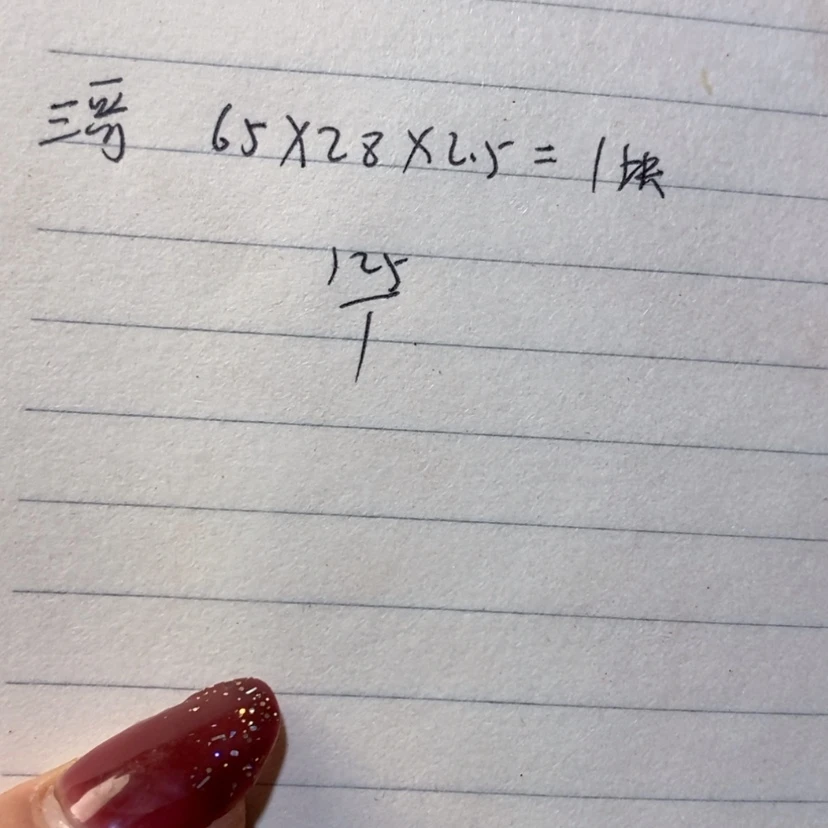 三哥 65×28×2.5=1块
125
1